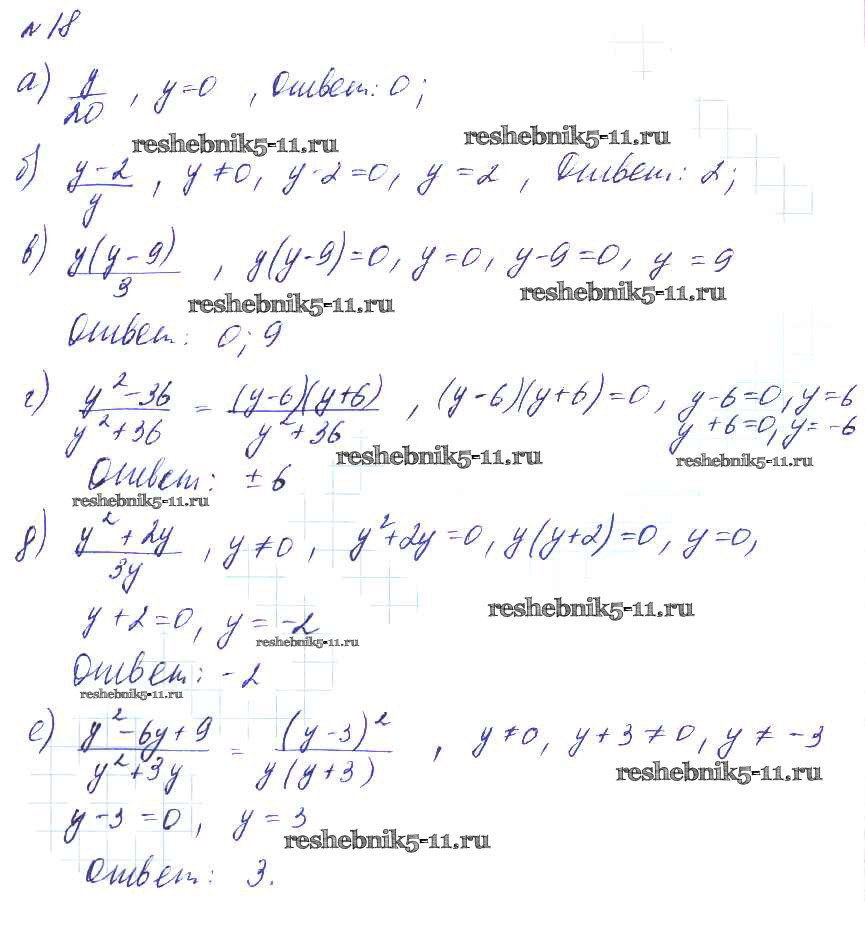 №18
а) y/20 , y=0 , Ответ: 0;
reshebnik5-11.ru reshebnik5-11.ru
б) (y-2)/y , y≠0, y-2=0, y=2 , Ответ: 2;
в) y(y-9)/3 , y(y-9)=0, y=0, y-9=0, y=9
reshebnik5-11.ru reshebnik5-11.ru
Ответ: 0; 9
г) (y²-36)/(y²+36) = (y-6)(y+6)/(y²+36) , (y-6)(y+6)=0, y-6=0, y=6
y+6=0, y=-6
reshebnik5-11.ru reshebnik5-11.ru
Ответ: ±6
reshebnik5-11.ru
д) (y²+2y)/3y , y≠0, y²+2y=0, y(y+2)=0, y=0,
reshebnik5-11.ru
y+2=0, y=-2
reshebnik5-11.ru
Ответ: -2
reshebnik5-11.ru
е) (y²-6y+9)/(y²+3y) = (y-3)²/(y(y+3)) , y≠0, y+3≠0, y≠-3
reshebnik5-11.ru
y-3=0, y=3
reshebnik5-11.ru
Ответ: 3.